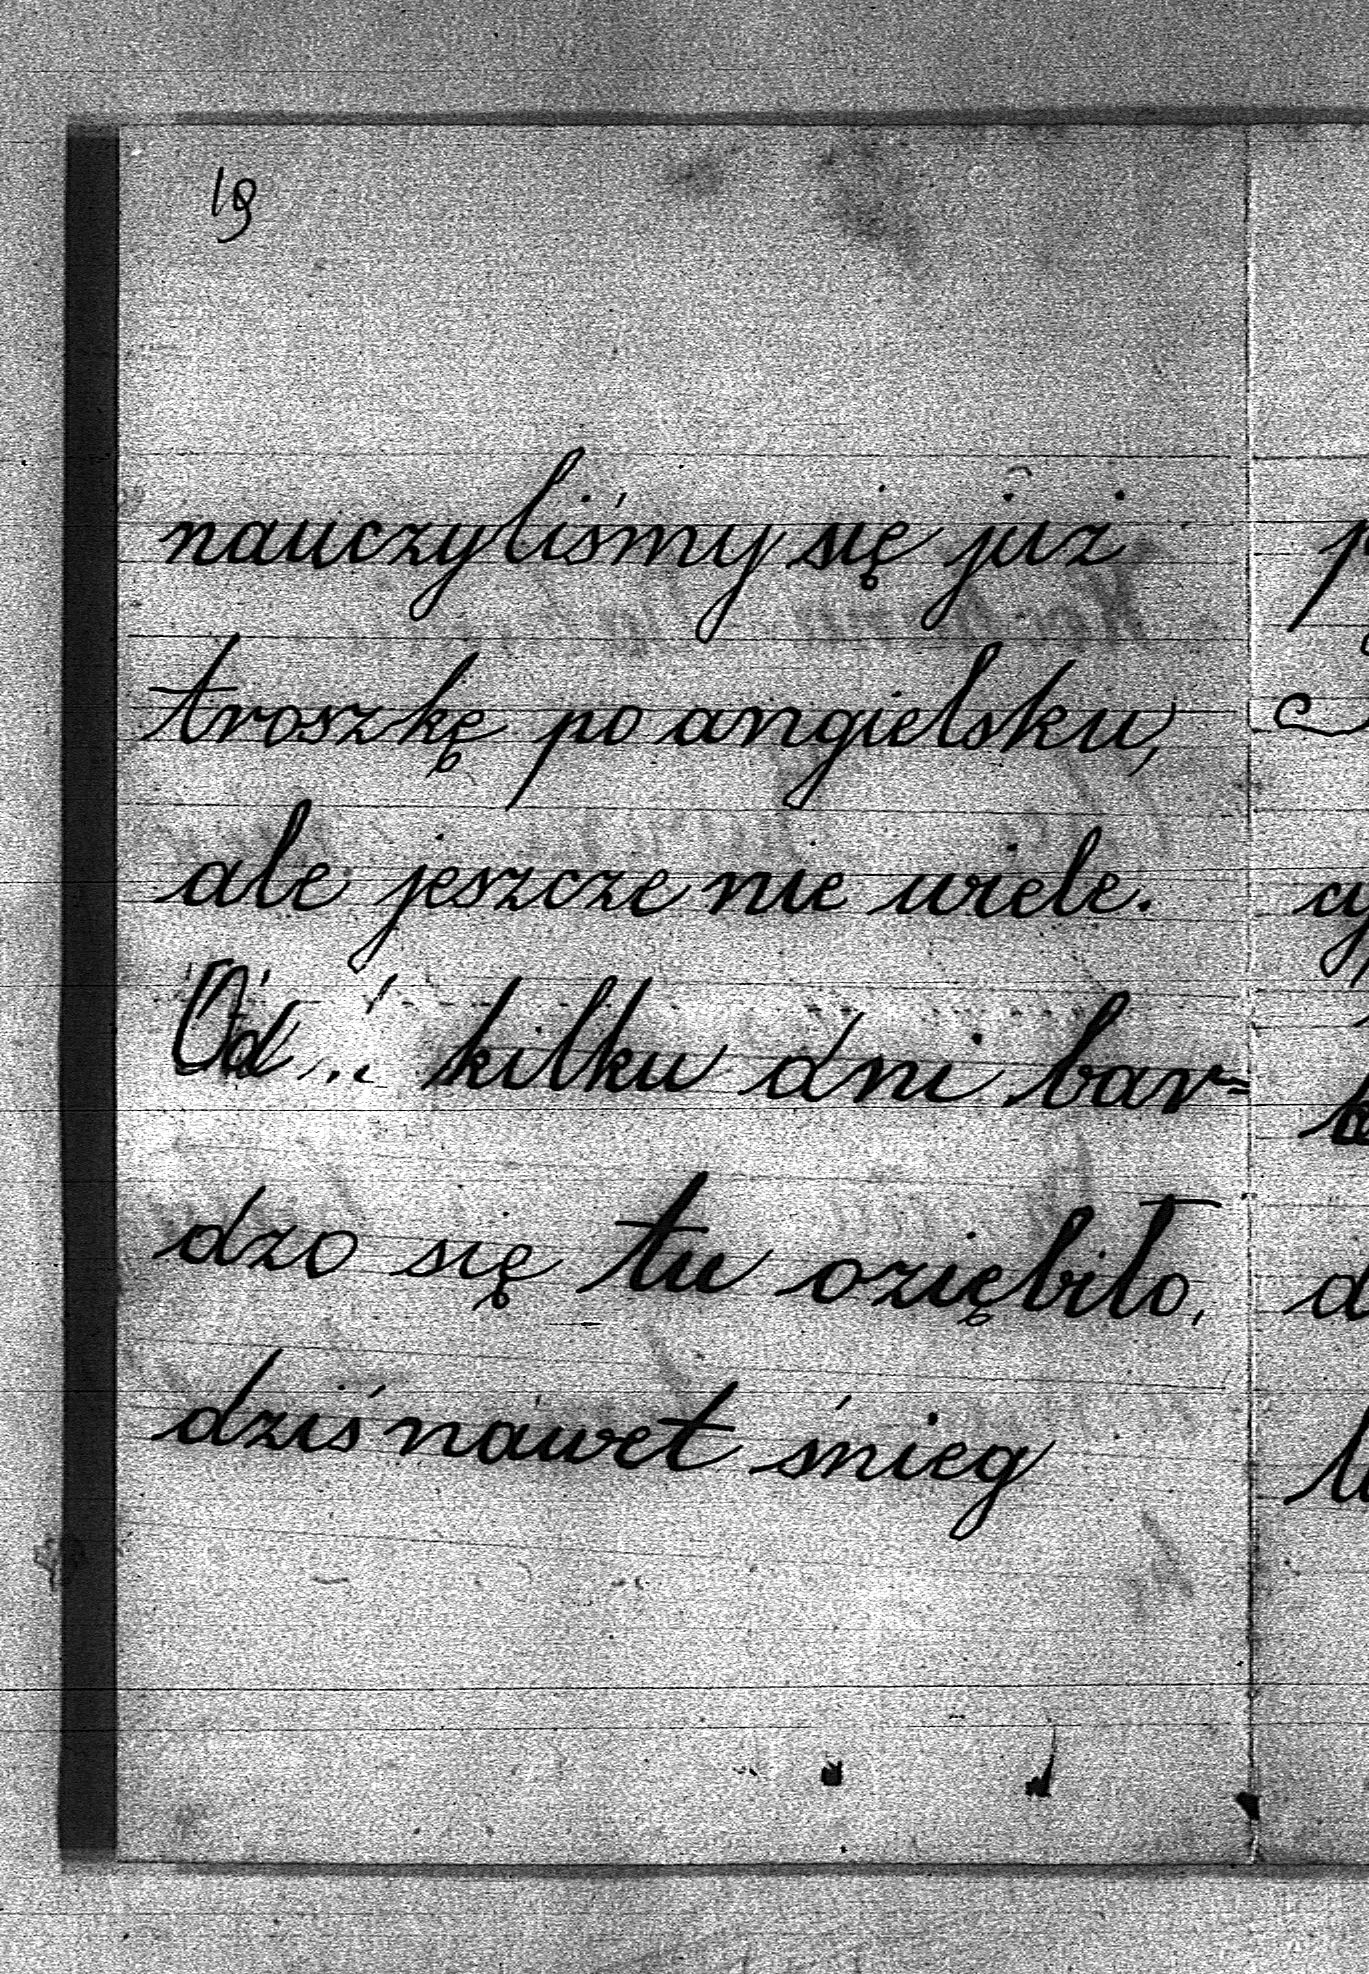 19
nauczyliśmy się już
troszkę po angielsku,
ale jeszcze nie wiele.
Od kilku dni bar=
dzo się tu oziębiło,
dziś nawet śnieg